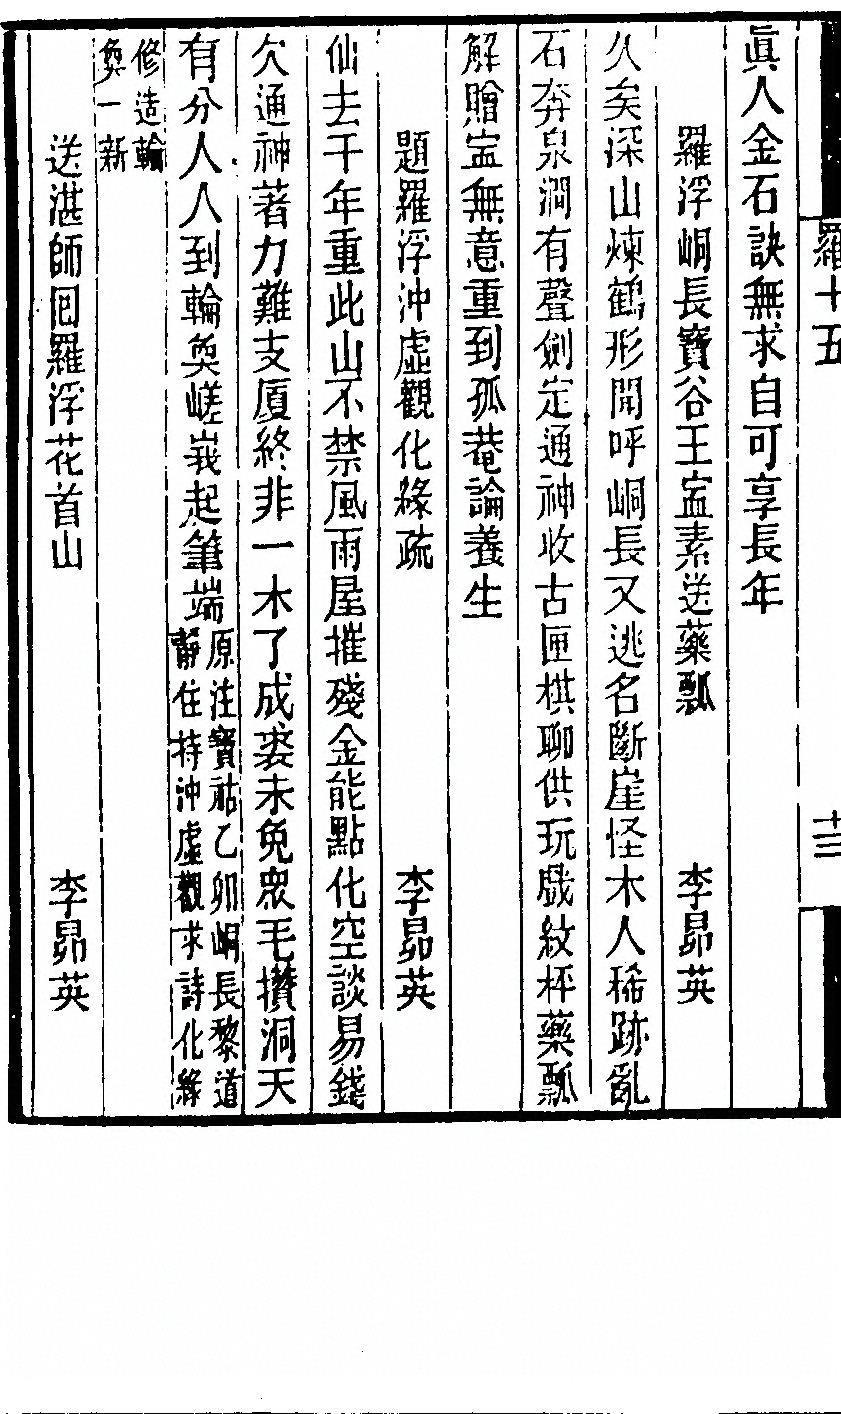 羅十五
十三
眞人金石訣無求自可享長年
羅浮峒長寶谷王寍素送藥瓢 李昴英
久矣深山煉鶴形開呼峒長又逃名斷崖怪木人稀跡亂
石奔泉澗有聲劍定通神收古匣棋聊供玩戲紋枰藥瓢
解贈寍無意重到孤菴論養生
題羅浮沖虛觀化緣疏 李昴英
仙去千年重此山不禁風雨屋摧殘金能點化空談易錢
欠通神著力難支厦終非一木了成裘未免眾毛攢洞天
有分人人到輪奐嵯峩起筆端原注寶祐乙卯峒長黎道
靜住持沖虛觀求詩化緣
修造輪
奐一新
送湛師囘羅浮花首山 李昴英